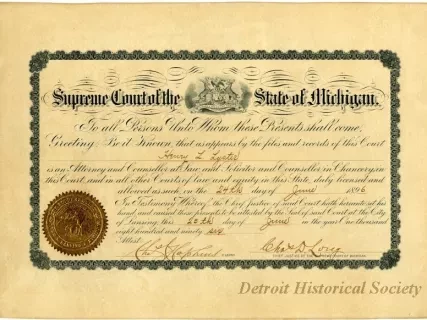 Supreme Court of the State of Michigan.
To all Persons Unto Whom these Presents shall come,
Greeting: Be it Known, that it appears by the files and records of this Court
Henry L Lyster
is an Attorney and Counsellor at Law, and Solicitor and Counsellor in Chancery, in
this Court, and in all other Courts of law and equity in this State, duly licensed and
allowed as such on the 24th day of June 1896
In Testimony Whereof, the Chief Justice of said Court hath hereunto set his
hand, and caused these presents to be attested by the Seal of said Court at the City
of Lansing, this 24th day of June in the year One thousand
eight hundred and ninety six
Attest:
Chas C Hopkins Clerk
Chas D Long
Detroit Historical Society